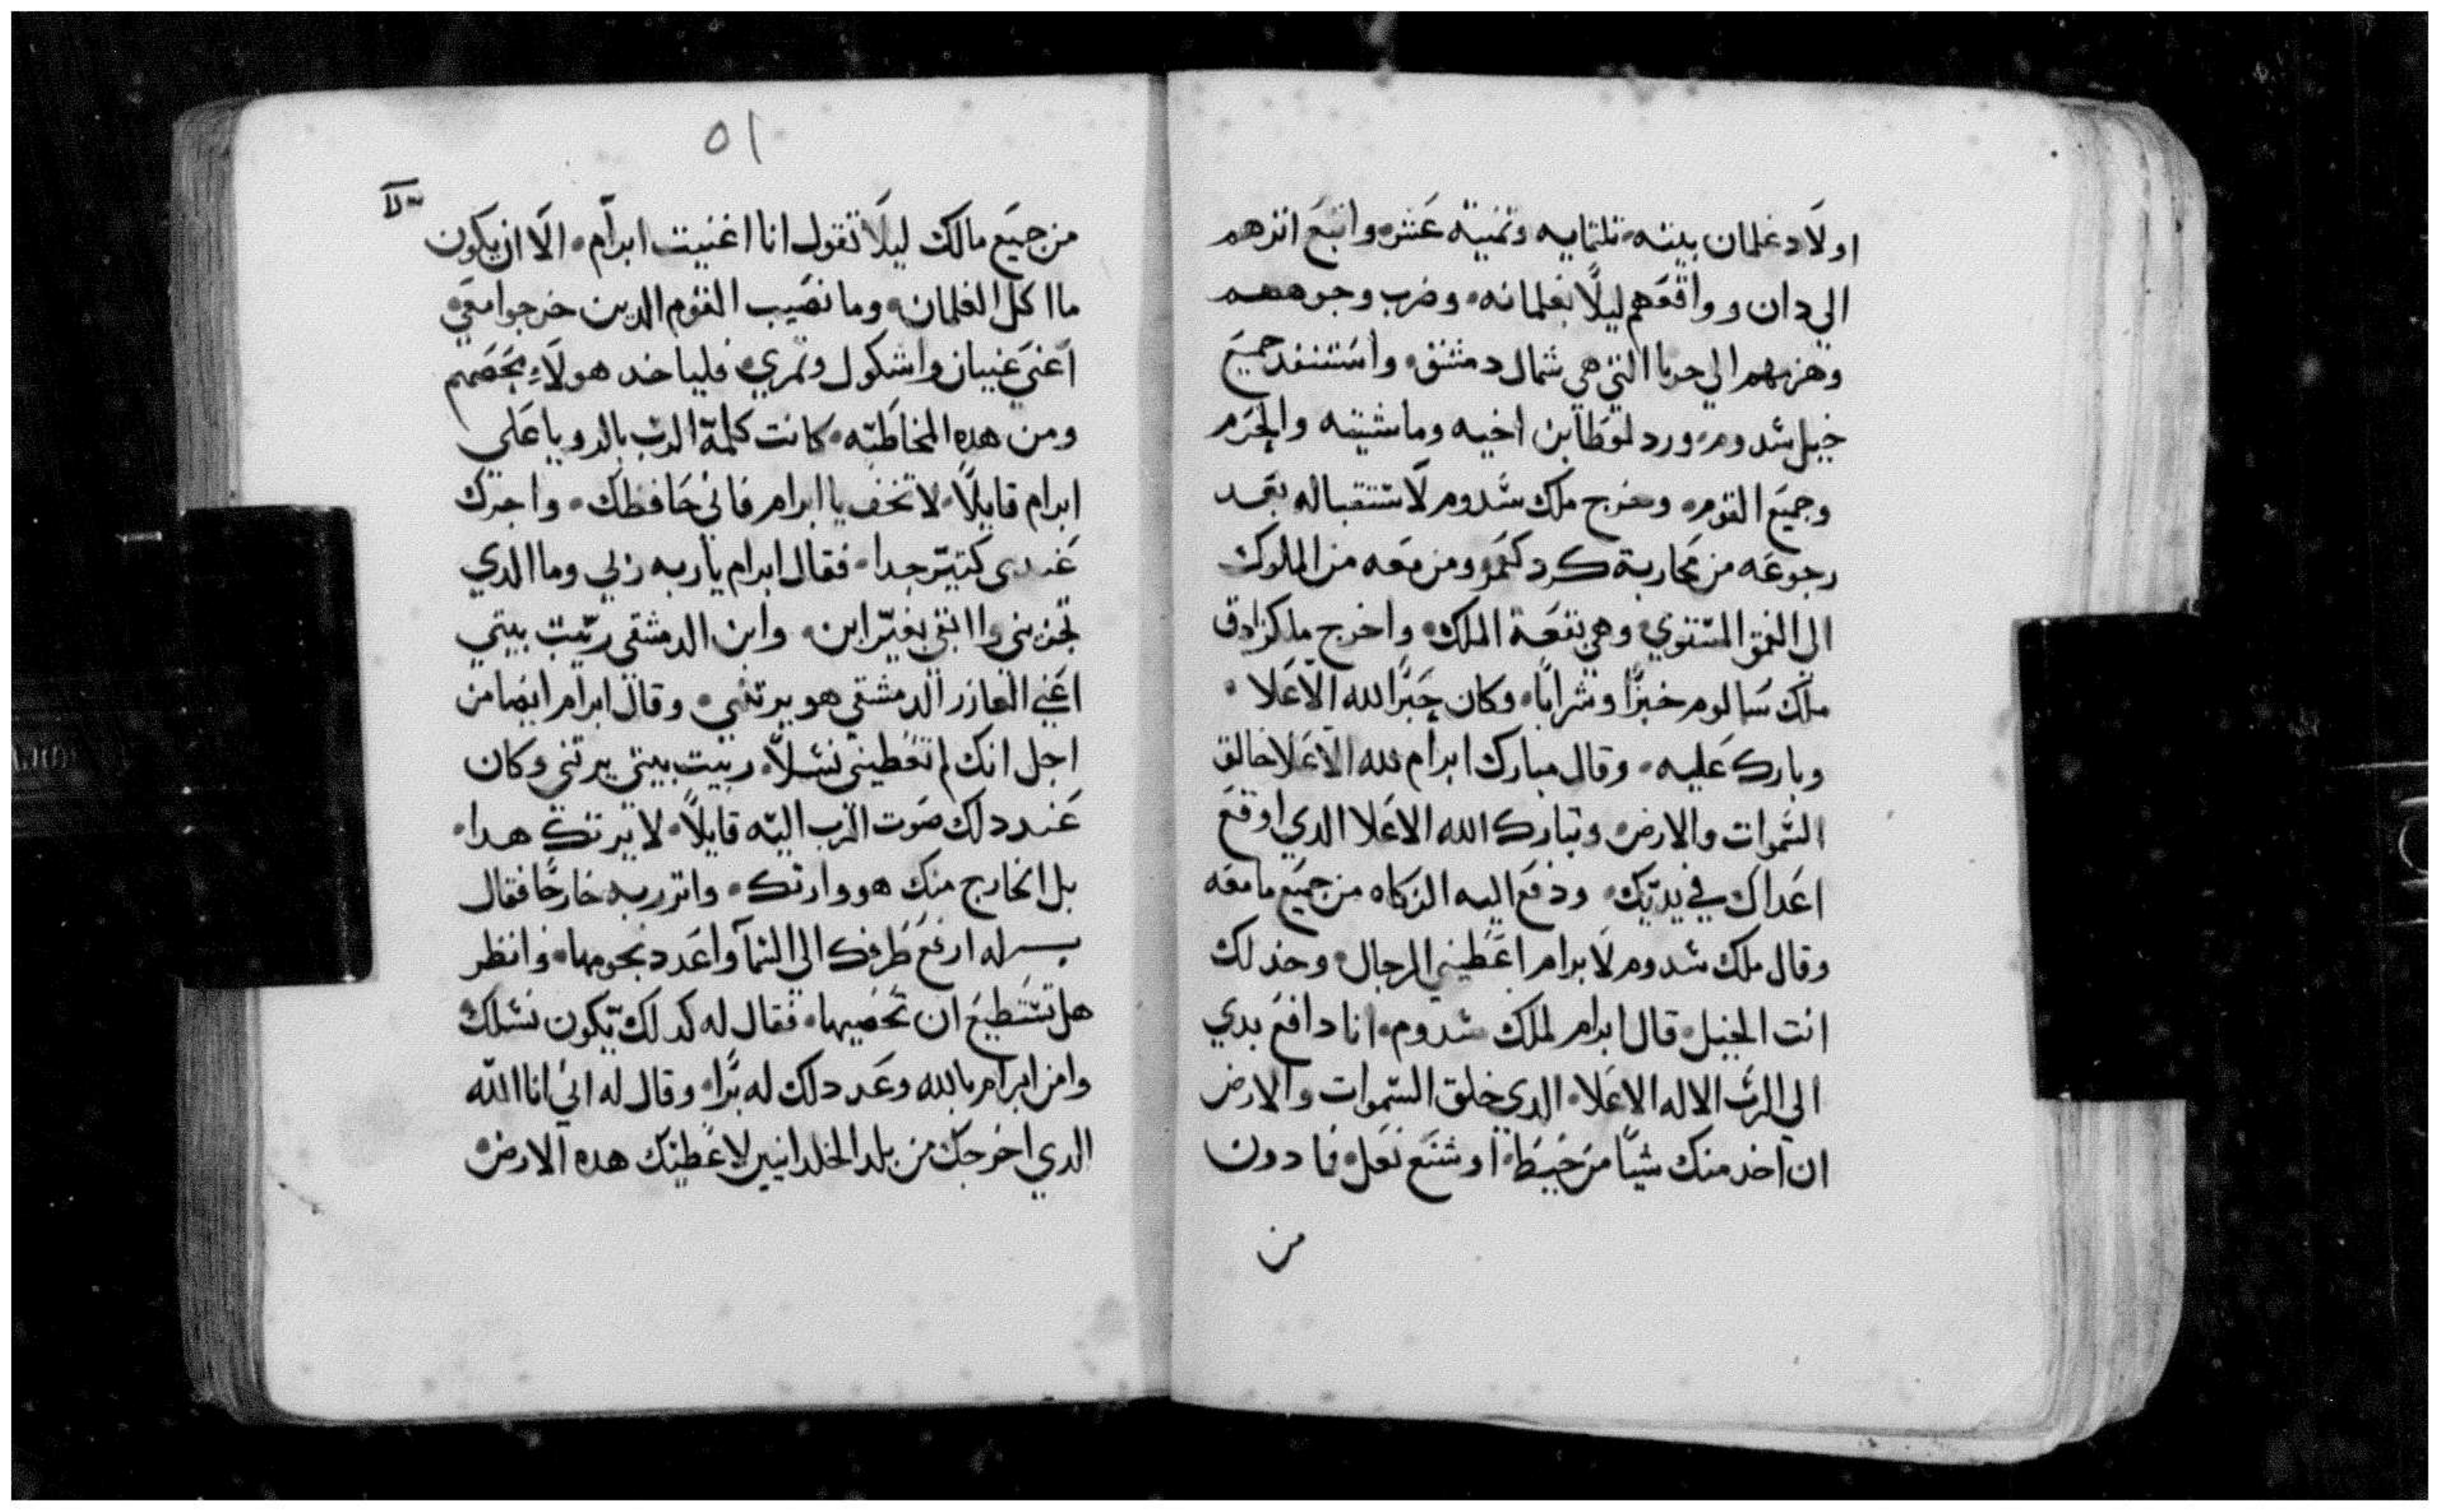 اولاد غلمان بيته تلتمايه وتمنية عشر واتبع اترهم
الي دان وواقعهم ليلًا بغلمانه وضرب وجوههم
وهزمهم الي حوبا التي هي شمال دمشق واستنقد جميع
خيل سدوم ورد لوطا بن اخيه وماشيته والحرم
وجميع القوم وخرج ملك سدوم لاستقباله بعد
رجوعه من محاربة كردلعمر ومن معه من الملوك
الي الغمق المستوي وهي بقعة الملك واخرج ملكزادق
ملك سالوم خبزًا وشرابًا وكان حبرًا لله الاعلا
وبارك عليه وقال مبارك ابرام لله الاعلا خالق
السموات والارض وتبارك الله الاعلا الدي اوقع
اعداك في يديك ودفع اليه الزكاه من جميع ما معه
وقال ملك سدوم لابرام اعطيني الرجال وخد لك
انت الخيل قال ابرام لملك سدوم انا دافع يدي
الي الرب الاله الاعلا الدي خلق السموات والارض
ان اخد منك شيًا من خيط او شسع نعل فما دون
من
٥١
من جميع مالك ليلا تقول انا اغنيت ابرام الا ان يكون
ما اكل الغلمان وما نصيب القوم الدين خرجوا معي
اعني عنيبان واشكول وتمري فلياخد هولاء بحصصهم
ومن هده المخاطبه كانت كلمة الرب بالرويا علي
ابرام قايلًا لا تخف يا ابرام فاني حافظك واجرك
عندي كتير جدا فقال ابرام يارب ربي وما الدي
تجزيني وانا ابقي بغير ابن وابن الدمشقي ربيت بيتي
اعني العازر الدمشقي هو يرتني وقال ابرام ايضا من
اجل انك لم تعطيني نسلًا ربيت بيتي يرتني وكان
عند دلك صوت الرب اليه قايلًا لا يرتك هدا
بل الخارج منك هو وارتك وابرز ربه خارجًا فقال
له ارفع طرفك الي السما واعدد نجومها وانظر
هل تستطيع ان تحصيها فقال له كدلك يكون نسلك
وامن ابرام بالله وعد دلك له برًا وقال له اني انا الله
الدي اخرجك من بلد الخلدانيين لاعطيك هده الارض